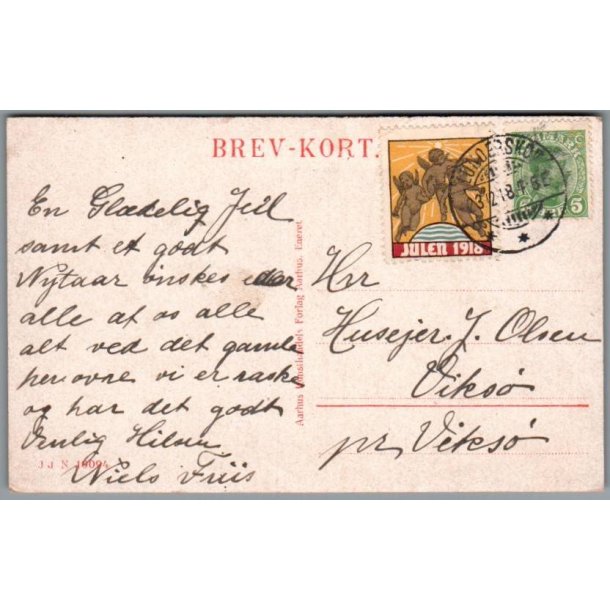 BREV-KORT.
En Glædelig Jul
samt et godt
Nytaar ønskes eder
alle af os alle
alt ved det gamle
her ovne vi er raske
og har det godt
Venlig Hilsen
Niels Friis
J J N 19094
Aarhus Kunsthandels Forlag Aarhus. Eneret
JULEN 1918
5
Hr
Husejer J. Olsen
Viksø
pr Viksø